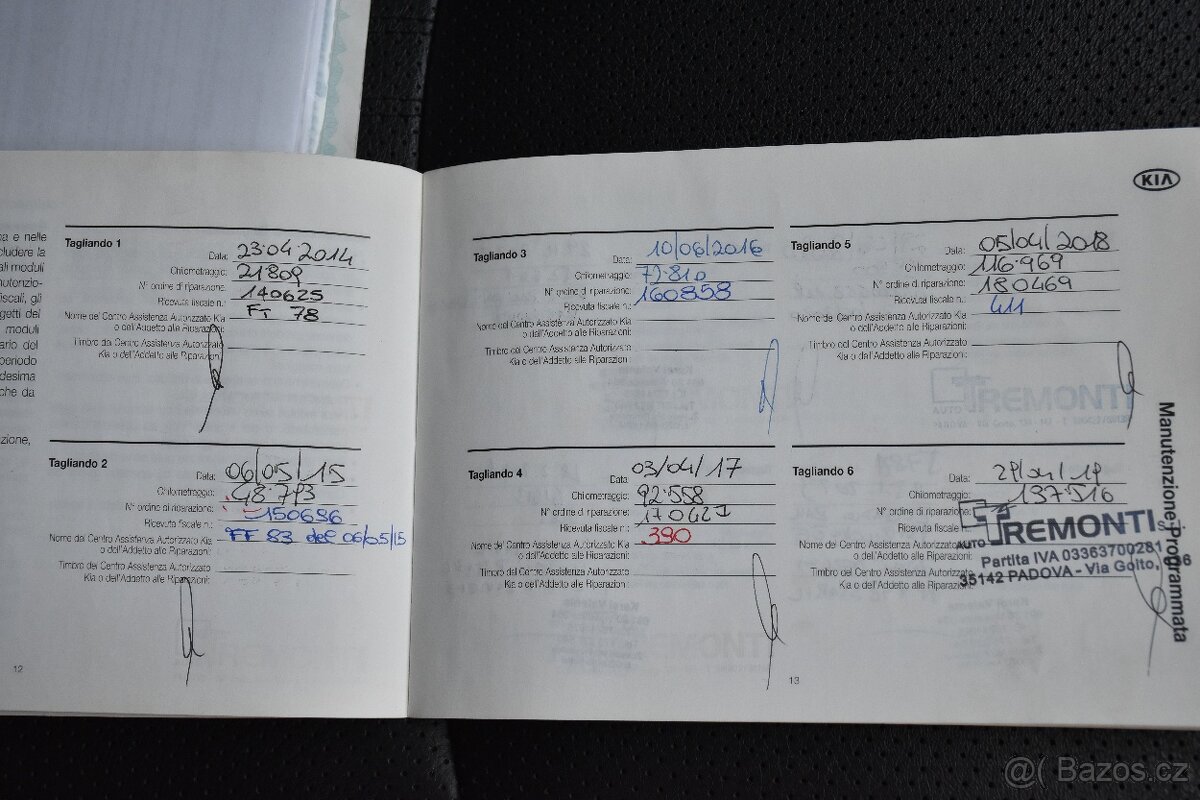 a e nelle
cludere la
ali moduli
nutenzio-
iscali, gli
getti del
moduli
ario del
periodo
desima
che da
zione,
Tagliando 1
Data: 23.04.2014
Chilometraggio: 21809
N° ordine di riparazione: 140625
Ricevuta fiscale n.: FT 78
Nome del Centro Assistenza Autorizzato Kia
o dell'Addetto alle Riparazioni:
Timbro del Centro Assistenza Autorizzato
Kia o dell'Addetto alle Riparazioni:
Tagliando 2
Data: 06/05/15
Chilometraggio: 48.793
N° ordine di riparazione: 150696
Ricevuta fiscale n.: FF 83 del 06/05/15
Nome del Centro Assistenza Autorizzato Kia
o dell'Addetto alle Riparazioni:
Timbro del Centro Assistenza Autorizzato
Kia o dell'Addetto alle Riparazioni:
12
KIA
Tagliando 3
Data: 10/06/2016
Chilometraggio: 72.810
N° ordine di riparazione: 160858
Ricevuta fiscale n.:
Nome del Centro Assistenza Autorizzato Kia
o dell'Addetto alle Riparazioni:
Timbro del Centro Assistenza Autorizzato
Kia o dell'Addetto alle Riparazioni:
Tagliando 4
Data: 03/04/17
Chilometraggio: 92.558
N° ordine di riparazione: 170421
Ricevuta fiscale n.: 390
Nome del Centro Assistenza Autorizzato Kia
o dell'Addetto alle Riparazioni:
Timbro del Centro Assistenza Autorizzato
Kia o dell'Addetto alle Riparazioni:
Tagliando 5
Data: 05/04/2018
Chilometraggio: 116.969
N° ordine di riparazione: 180469
Ricevuta fiscale n.: 411
Nome del Centro Assistenza Autorizzato Kia
o dell'Addetto alle Riparazioni:
Timbro del Centro Assistenza Autorizzato
Kia o dell'Addetto alle Riparazioni:
AUTO TREMONTI
Tagliando 6
Data: 29/04/19
Chilometraggio: 137.516
N° ordine di riparazione:
Ricevuta fiscale
Nome del Centro Assistenza Autorizzato Kia
o dell'Addetto alle Riparazioni:
Timbro del Centro Assistenza Autorizzato
Kia o dell'Addetto alle Riparazioni:
AUTO TREMONTI
Partita IVA 03363700281
35142 PADOVA - Via Goito,
Manutenzione Programmata
13
@( Bazos.cz